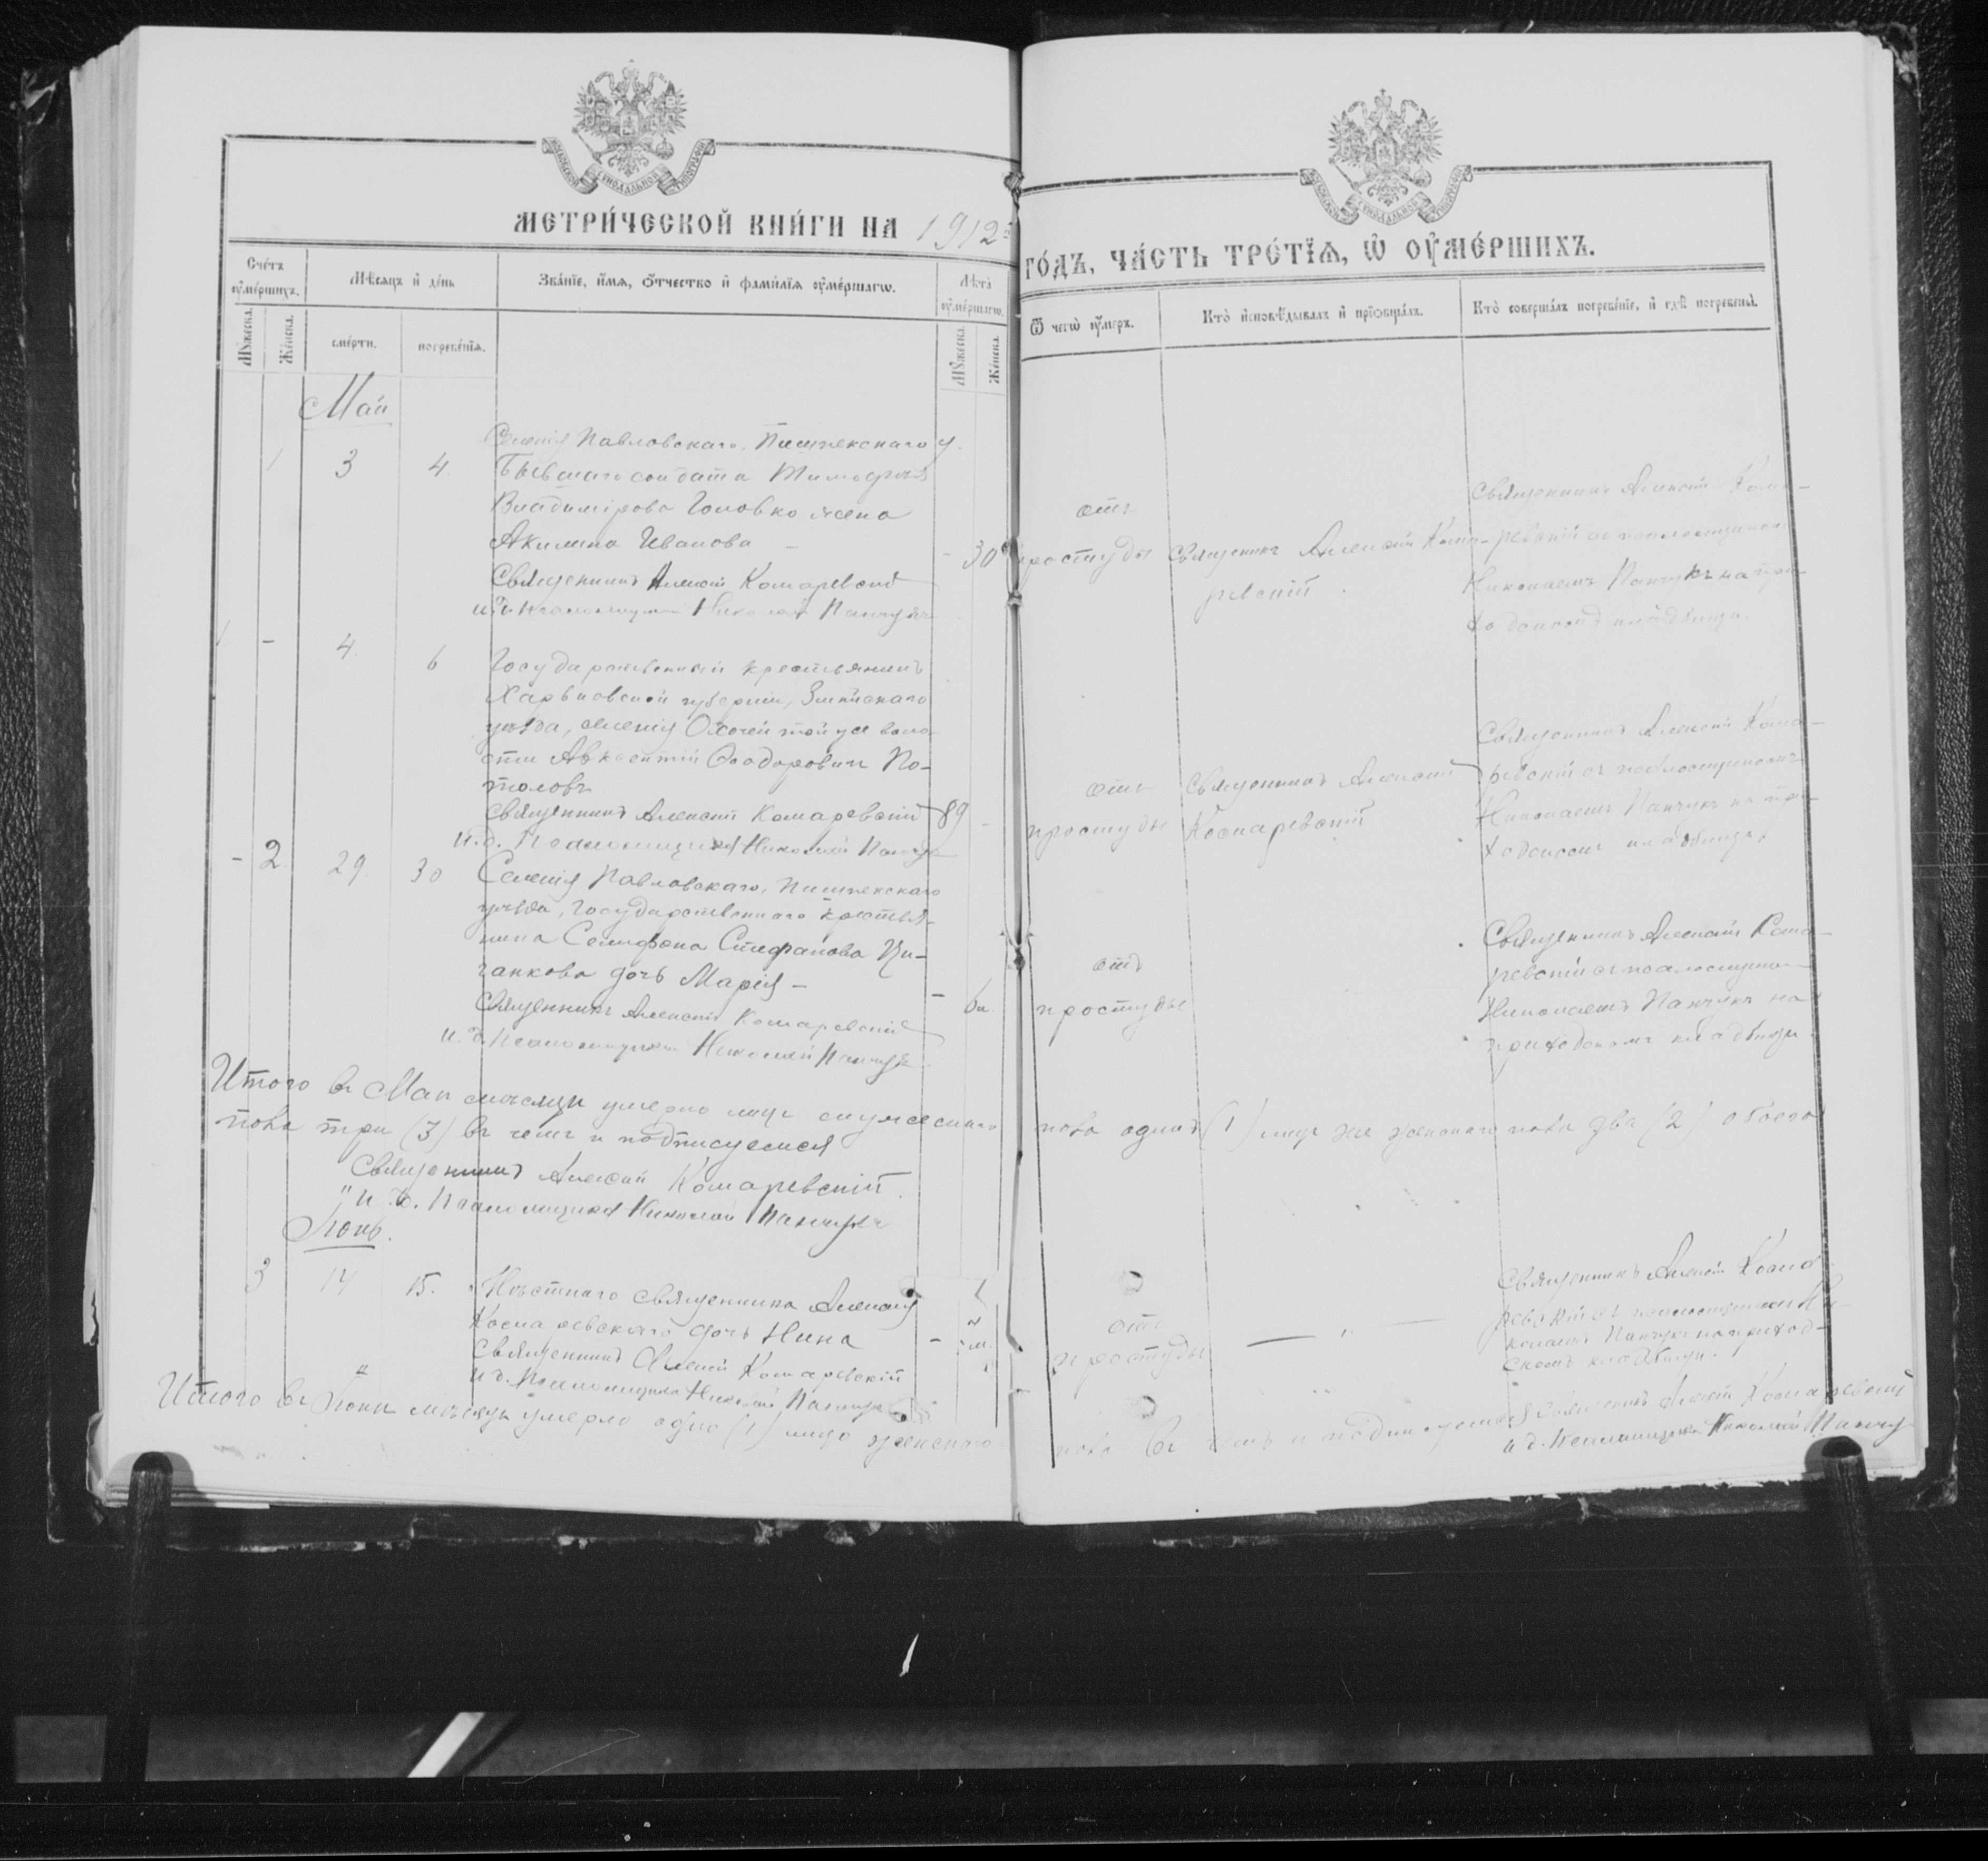 МЕТРИ́ЧЕСКОЙ КНИ́ГИ НА 1912
ГО́ДЪ, ЧА́СТЬ ТРЕ́ТЇѦ, Ѿ ОУ҆МЕ́РШИХЪ.
Сче́тъ оу҆ме́ршихъ.
Мѣ́сяцъ и҆ де́нь
Зва́нїе, и҆́мѧ, ѻ҆́тчество и҆ фами́лїѧ оу҆ме́ршагѡ.
Лѣ́та оу҆ме́ршагѡ.
Ѿ чегѡ̀ оу҆́меръ.
Кто̀ и҆сповѣ́дывалъ и҆ прїѡбща́лъ.
Кто̀ соверша́лъ погребе́нїе, и҆ гдѣ̀ погребены̀.
Мꙋ́жеска.
Же́нска.
сме́рти.
погребе́нїѧ.
Мꙋ́жеска.
Же́нска.
Май
1 3 4.
Селенія Павловскаго, Пишпекскаго у.
Бывшаго солдата Тимофѣя
Владимірова Головко жена
Акилина Иванова –
Священникъ Алексій Комаревскій
и. д. псаломщика Николай Панчукъ
- 30
отъ
простуды
Священникъ Алексій Кома-
ревскій.
Священникъ Алексій Кома-
ревскій съ псаломщикомъ
Николаемъ Панчукъ на при-
ходскомъ кладбищѣ.
1 - 4. 6
Государственный крестьянинъ
Харьковской губерніи, Зміевскаго
уѣзда, селенія Охочей той же воло-
сти Авксентій Ѳеодоровичъ По-
толовъ
Священникъ Алексій Комаревскій
и. д. Псаломщика Николай Панчукъ
89 -
отъ
простуды
Священникъ Алексій
Комаревскій
Священникъ Алексій Кома-
ревскій съ псаломщикомъ
Николаемъ Панчукъ на при-
ходскомъ кладбищѣ
- 2 29. 30
Селенія Павловскаго, Пишпекскаго
уѣзда, Государственнаго крестья-
нина Селифона Стефанова Ци-
ганкова дочь Марія –
Священникъ Алексій Комаревскій
и. д. Псаломщика Николай Панчукъ
- 6м.
отъ
простуды
Священникъ Алексій Кома-
ревскій съ псаломщикомъ
Николаемъ Панчукъ на
приходскомъ кладбищѣ
Итого въ Маѣ мѣсяцѣ умерло лицъ мужескаго пола одинъ (1) лицъ же женскаго пола два (2) обоего
пола три (3) въ чемъ и подписуемся
Священникъ Алексій Комаревскій.
и. д. Псаломщика Николай Панчукъ
Іюнь.
3 14 15.
Мѣстнаго священника Алексія
Комаревскаго дочь Нина
Священникъ Алексій Комаревскій
и д. Псаломщика Николай Панчукъ
- м.
отъ
простуды
— „ —
Священникъ Алексій Кома-
ревскій съ псаломщикомъ Ни-
колаемъ Панчукъ на приход-
скомъ кладбищѣ.
Итого въ Іюнѣ мѣсяцѣ умерло одно (1) лицо женскаго пола въ чемъ и подписуемся Священникъ Алексій Комаревскій
и д. Псаломщика Николай Панчукъ